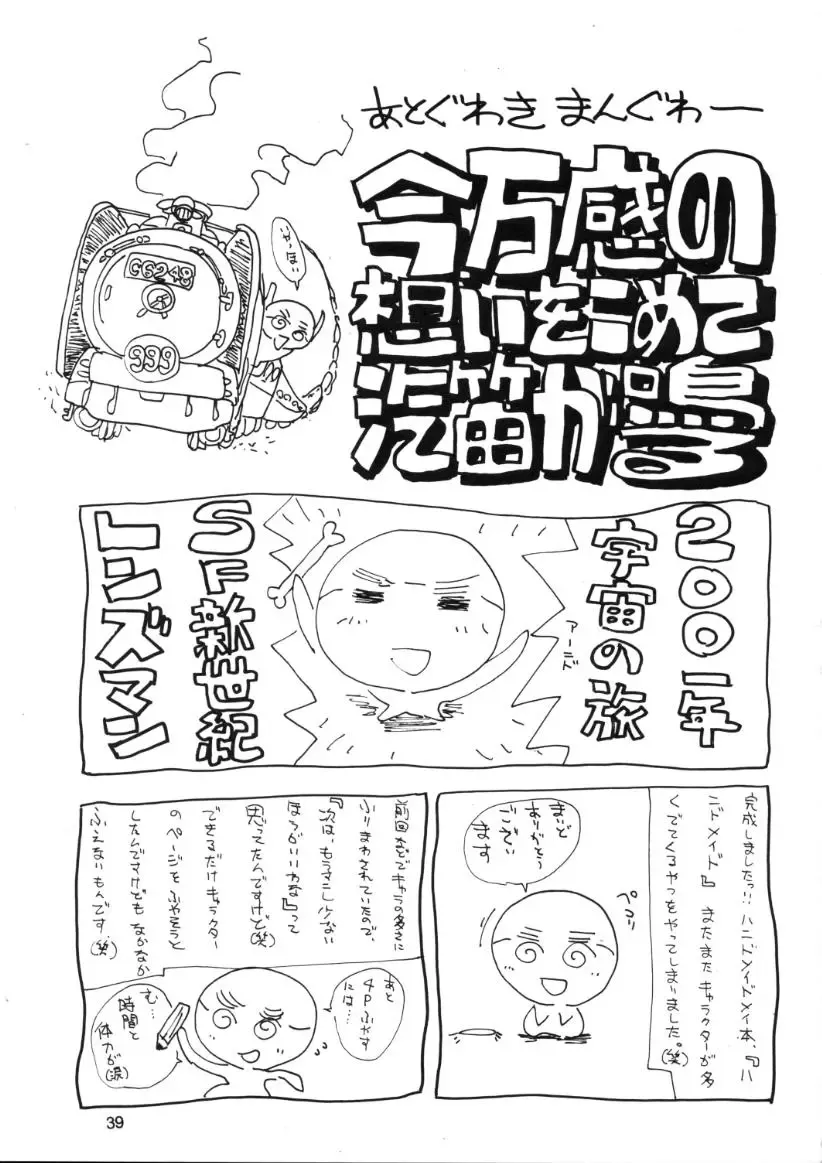 あとぐわき まんぐわー
今万感の
想いをこめて
汽笛が鳴る
いやっほい
C6248
999
2001年
宇宙の旅
アーニド
SF新世紀
レンズマン
完成しましたっ!! ハニドメイドメイ本、『ハ
ニドメイド』 またまたキャラクターが多
くでてくるやつをやってしまいました。(笑)
まいど
ありがとう
ござい
ます
ペコリ
前回
キャラの多さに
ふりまわされていたので、
『次は、もう少ない
ほうがいいわな』って
思ってたんですけど(笑)
できるだけキャラクター
のページをふやそうと
したんですけども なかなか
ふえないもんです。(笑)
あと
4Pふやす
には…
む…
時間と
体力が(涙)
39